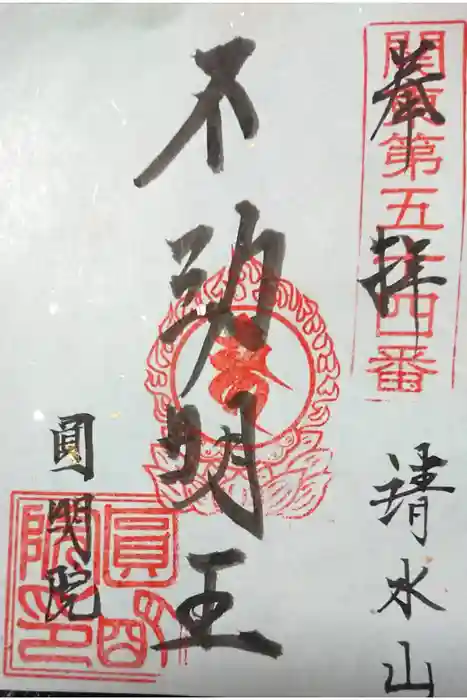 奉拝
関東第五十四番
清水山
不動明王
圓明院
圓明院印